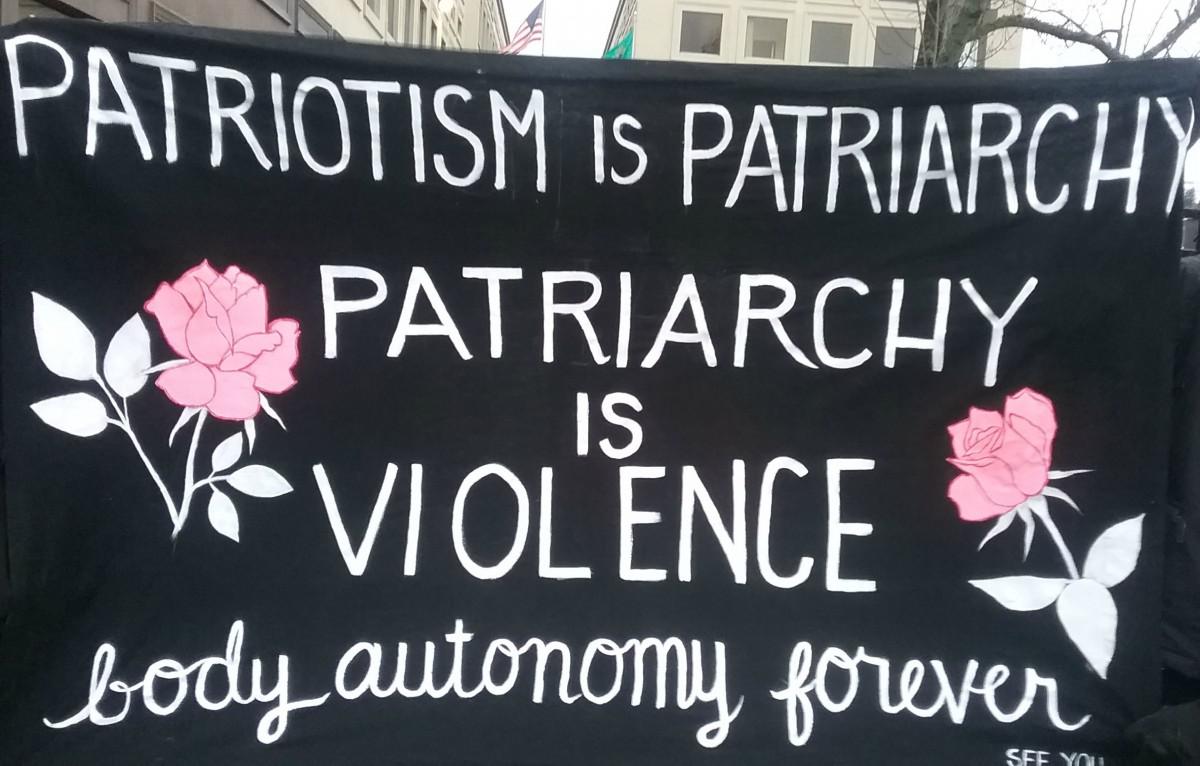 PATRIOTISM IS PATRIARCHY
PATRIARCHY
IS
VIOLENCE
body autonomy forever
SEE YOU